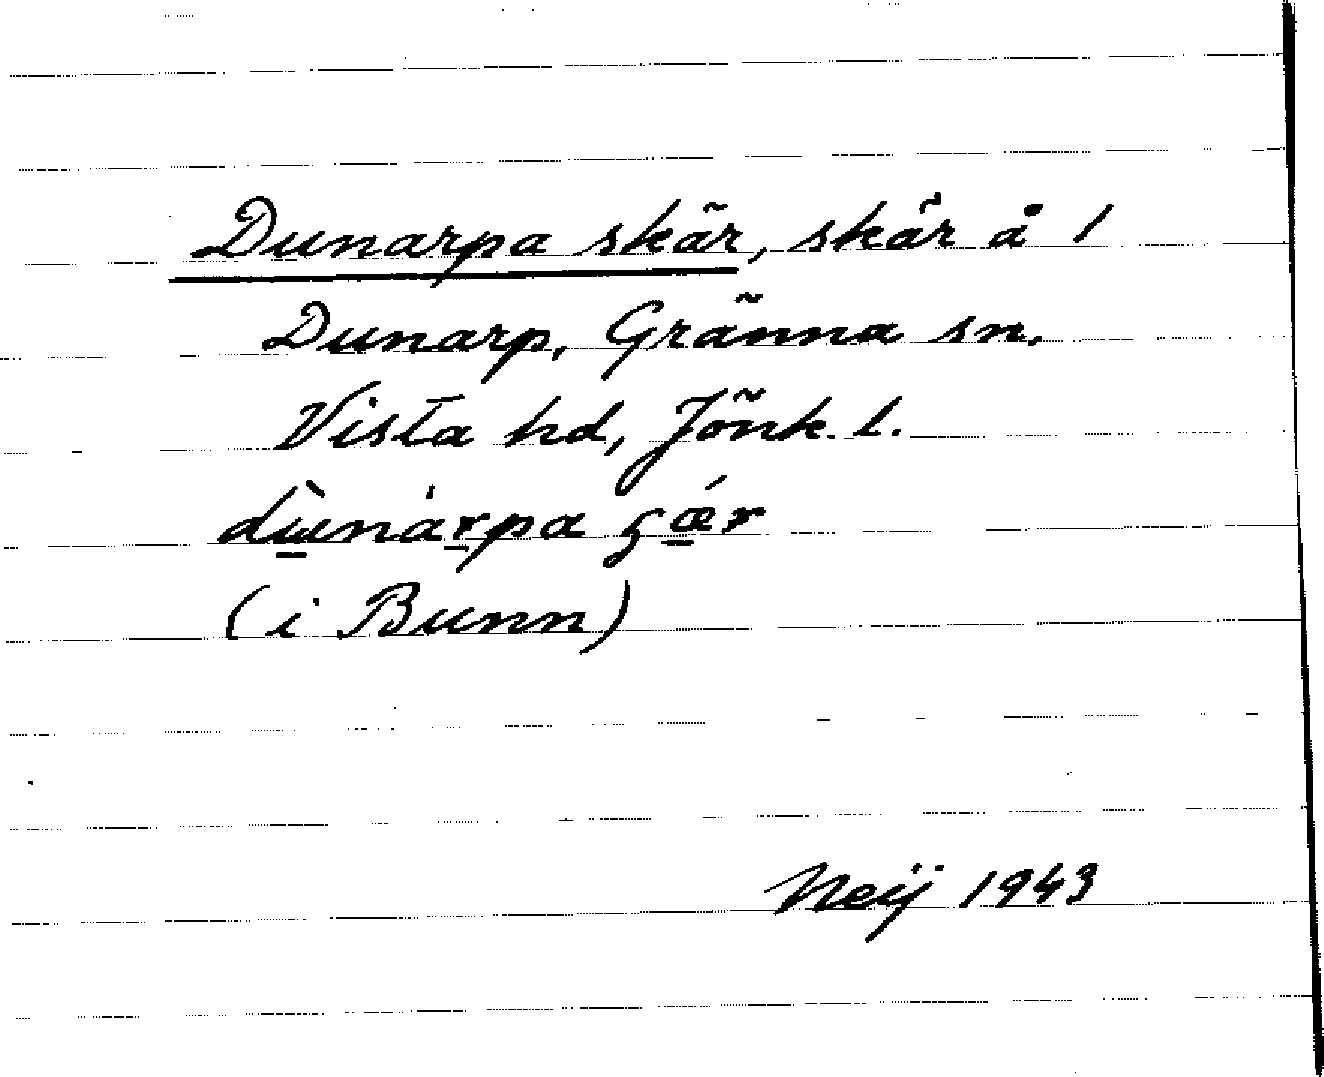 Dunarpa skär, skär å 1
Dunarp, Gränna sn.
Vista hd, Jönk. l.
dùnárpa ɕǽr
(i Bunn)
Neij 1943